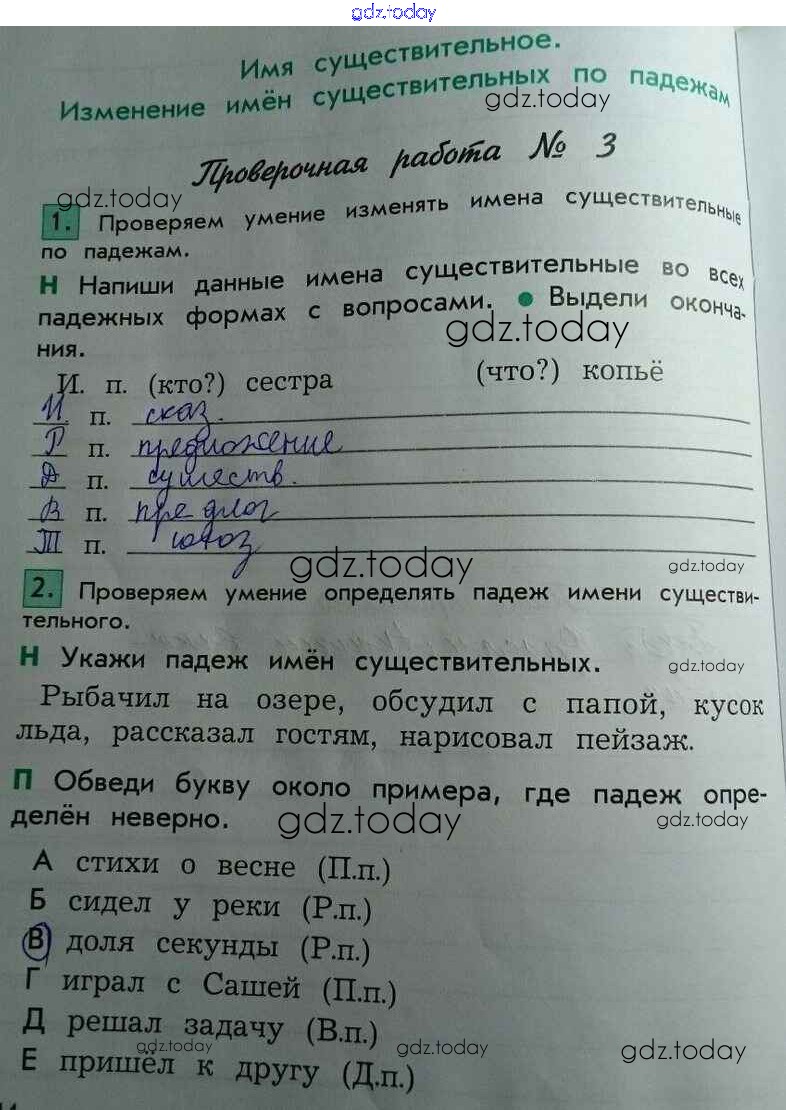 gdz.today
Имя существительное.
Изменение имён существительных по падежам
gdz.today
Проверочная работа № 3
gdz.today
1. Проверяем умение изменять имена существительные
по падежам.
Н Напиши данные имена существительные во всех
падежных формах с вопросами. ● Выдели оконча-
ния.
gdz.today
И. п. (кто?) сестра (что?) копьё
И п. сказ.
Р п. предложение
Д п. существ.
В п. предлог
Т п. союз
gdz.today gdz.today
2. Проверяем умение определять падеж имени существи-
тельного.
Н Укажи падеж имён существительных.
gdz.today
Рыбачил на озере, обсудил с папой, кусок
льда, рассказал гостям, нарисовал пейзаж.
П Обведи букву около примера, где падеж опре-
делён неверно.
gdz.today gdz.today
А стихи о весне (П.п.)
Б сидел у реки (Р.п.)
В доля секунды (Р.п.)
Г играл с Сашей (П.п.)
Д решал задачу (В.п.)
gdz.today gdz.today gdz.today
Е пришёл к другу (Д.п.)